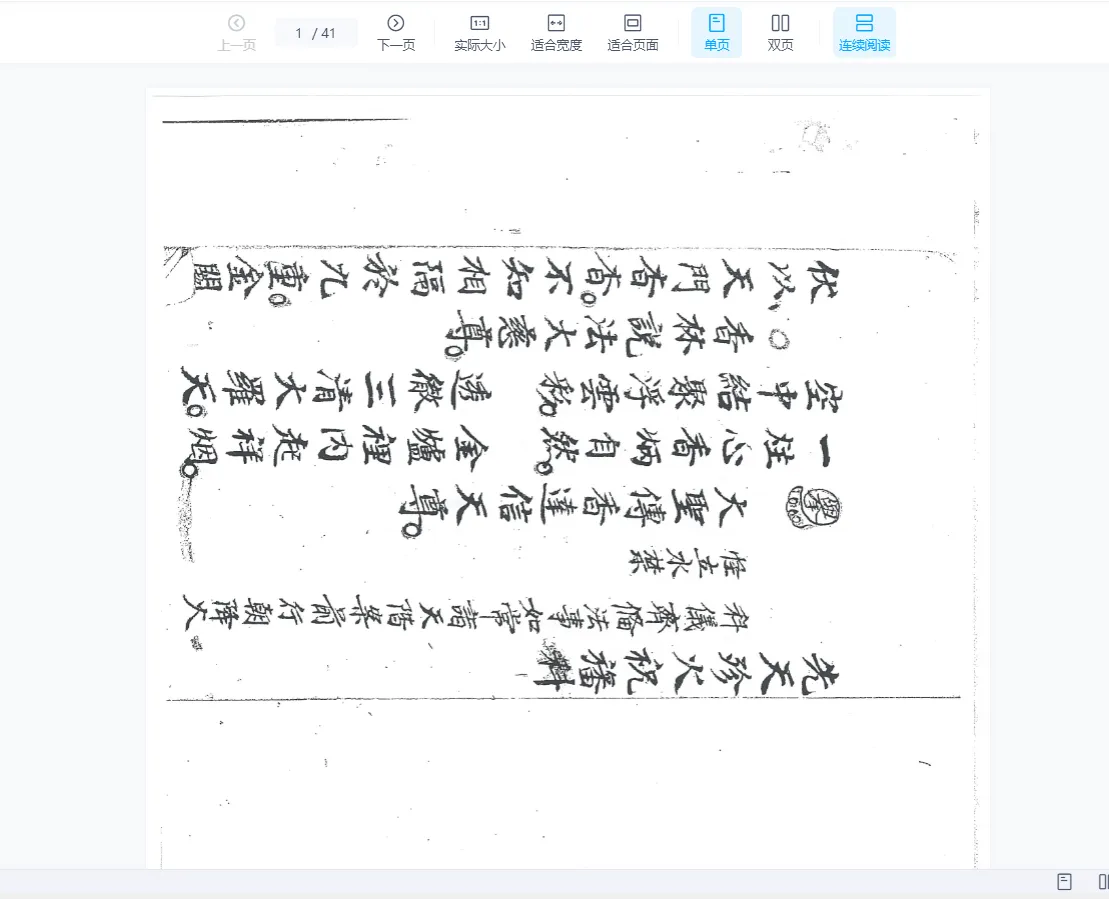 上一页 1 / 41 下一页 1:1 实际大小 适合宽度 适合页面 单页 双页 连续阅读
先天發火祝旛科
科儀齊備法事如常詣天階前行朝降大
大聖傳香達信天尊。
一炷心香炳自然。 金爐裡內起祥烟。
空中結聚浮雲彩。 透徹三清大羅天。
○香林說法大慈尊。
伏以天門香香。不知相隔於九重。金盟